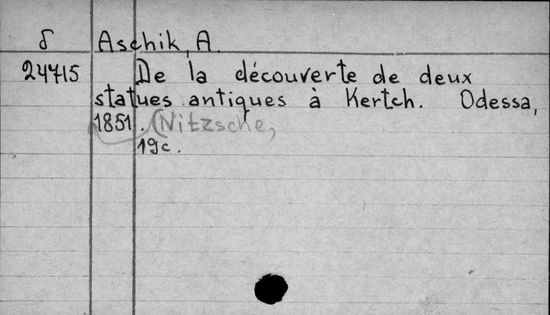 δ Aschik, A.
24715 De la découverte de deux
statues antiques à Kertch. Odessa,
1851. (Nitzsche,
19c.